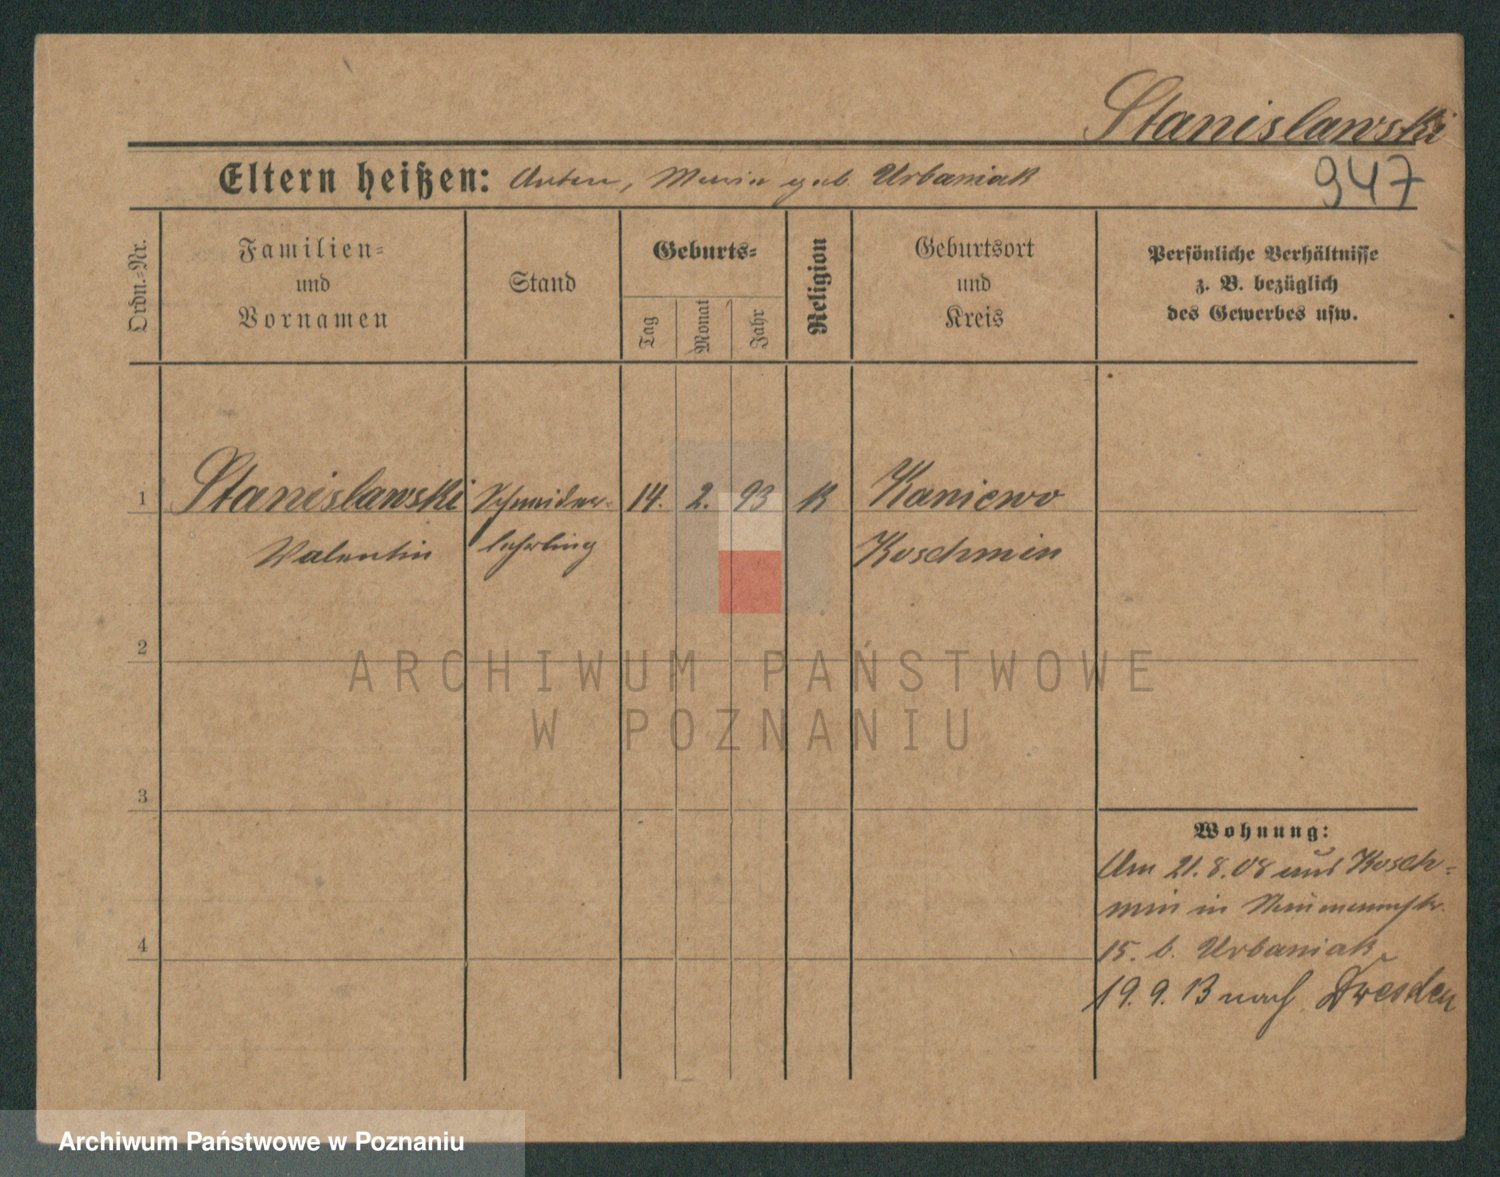 Stanislawski
947
Eltern heißen: Anton, Maria geb. Urbaniak
Ordn.-Nr.
Familien-
und
Vornamen
Stand
Geburts-
Tag
Monat
Jahr
Religion
Geburtsort
und
Kreis
Persönliche Verhältnisse
z. B. bezüglich
des Gewerbes usw.
1 Stanislawski Schneider- 14. 2. 93 K Kaniewo
Valentin lehrling Koschmin
2
ARCHIWUM PAŃSTWOWE
W POZNANIU
3
Wohnung:
Am 21.8.08 aus Kosch-
min in
4
15. b. Urbaniak
19.9.13 nach Dresden
Archiwum Państwowe w Poznaniu